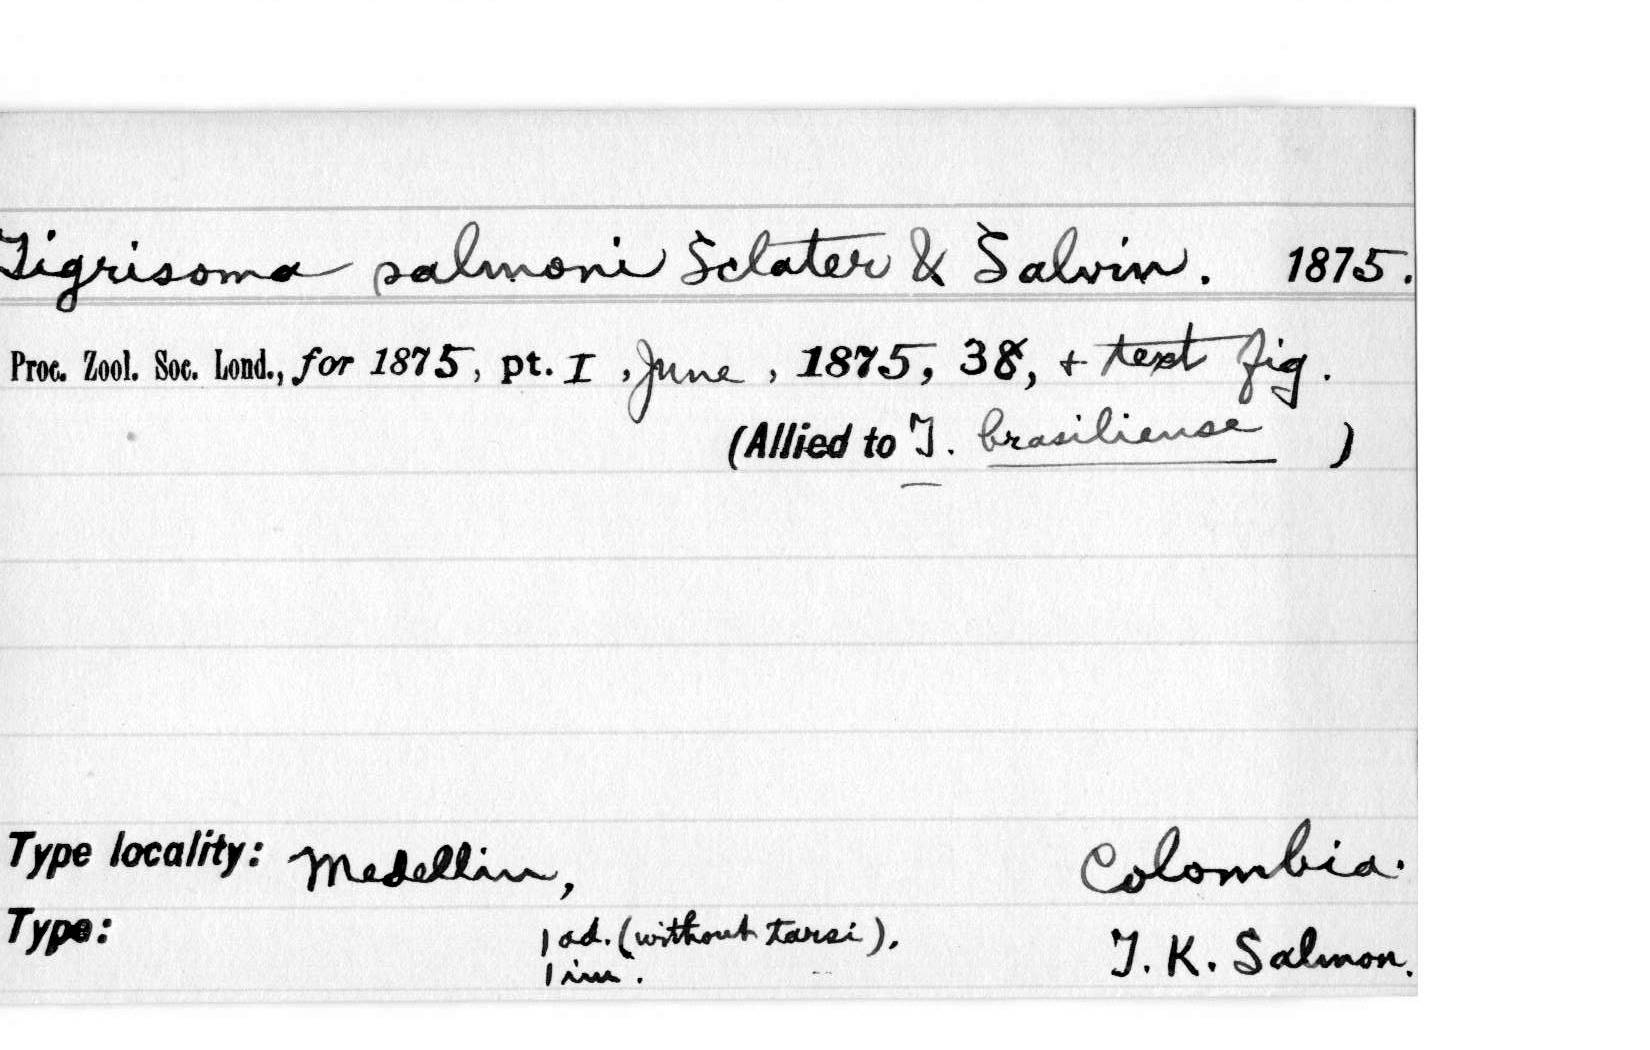 Tigrisoma salmoni Sclater & Salvin. 1875.
Proc. Zool. Soc. Lond., for 1875, pt. I, June, 1875, 38, + text fig.
(Allied to T. brasiliense )
Type locality: Medellin, Colombia.
Type: 1 ad. (without tarsi), T. K. Salmon.
1 im.